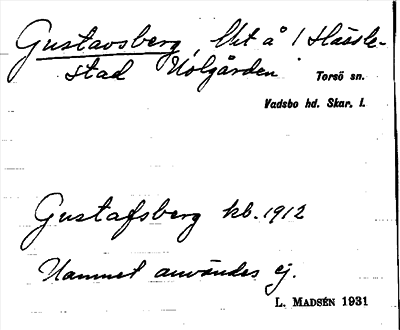 Gustavsberg, Ut å 1 Hassle-
stad Nolgården Torsö sn.
Vadsbo hd. Skar. l.
Gustafsberg kb. 1912
Namnet användes ej.
L. MADSÉN 1931